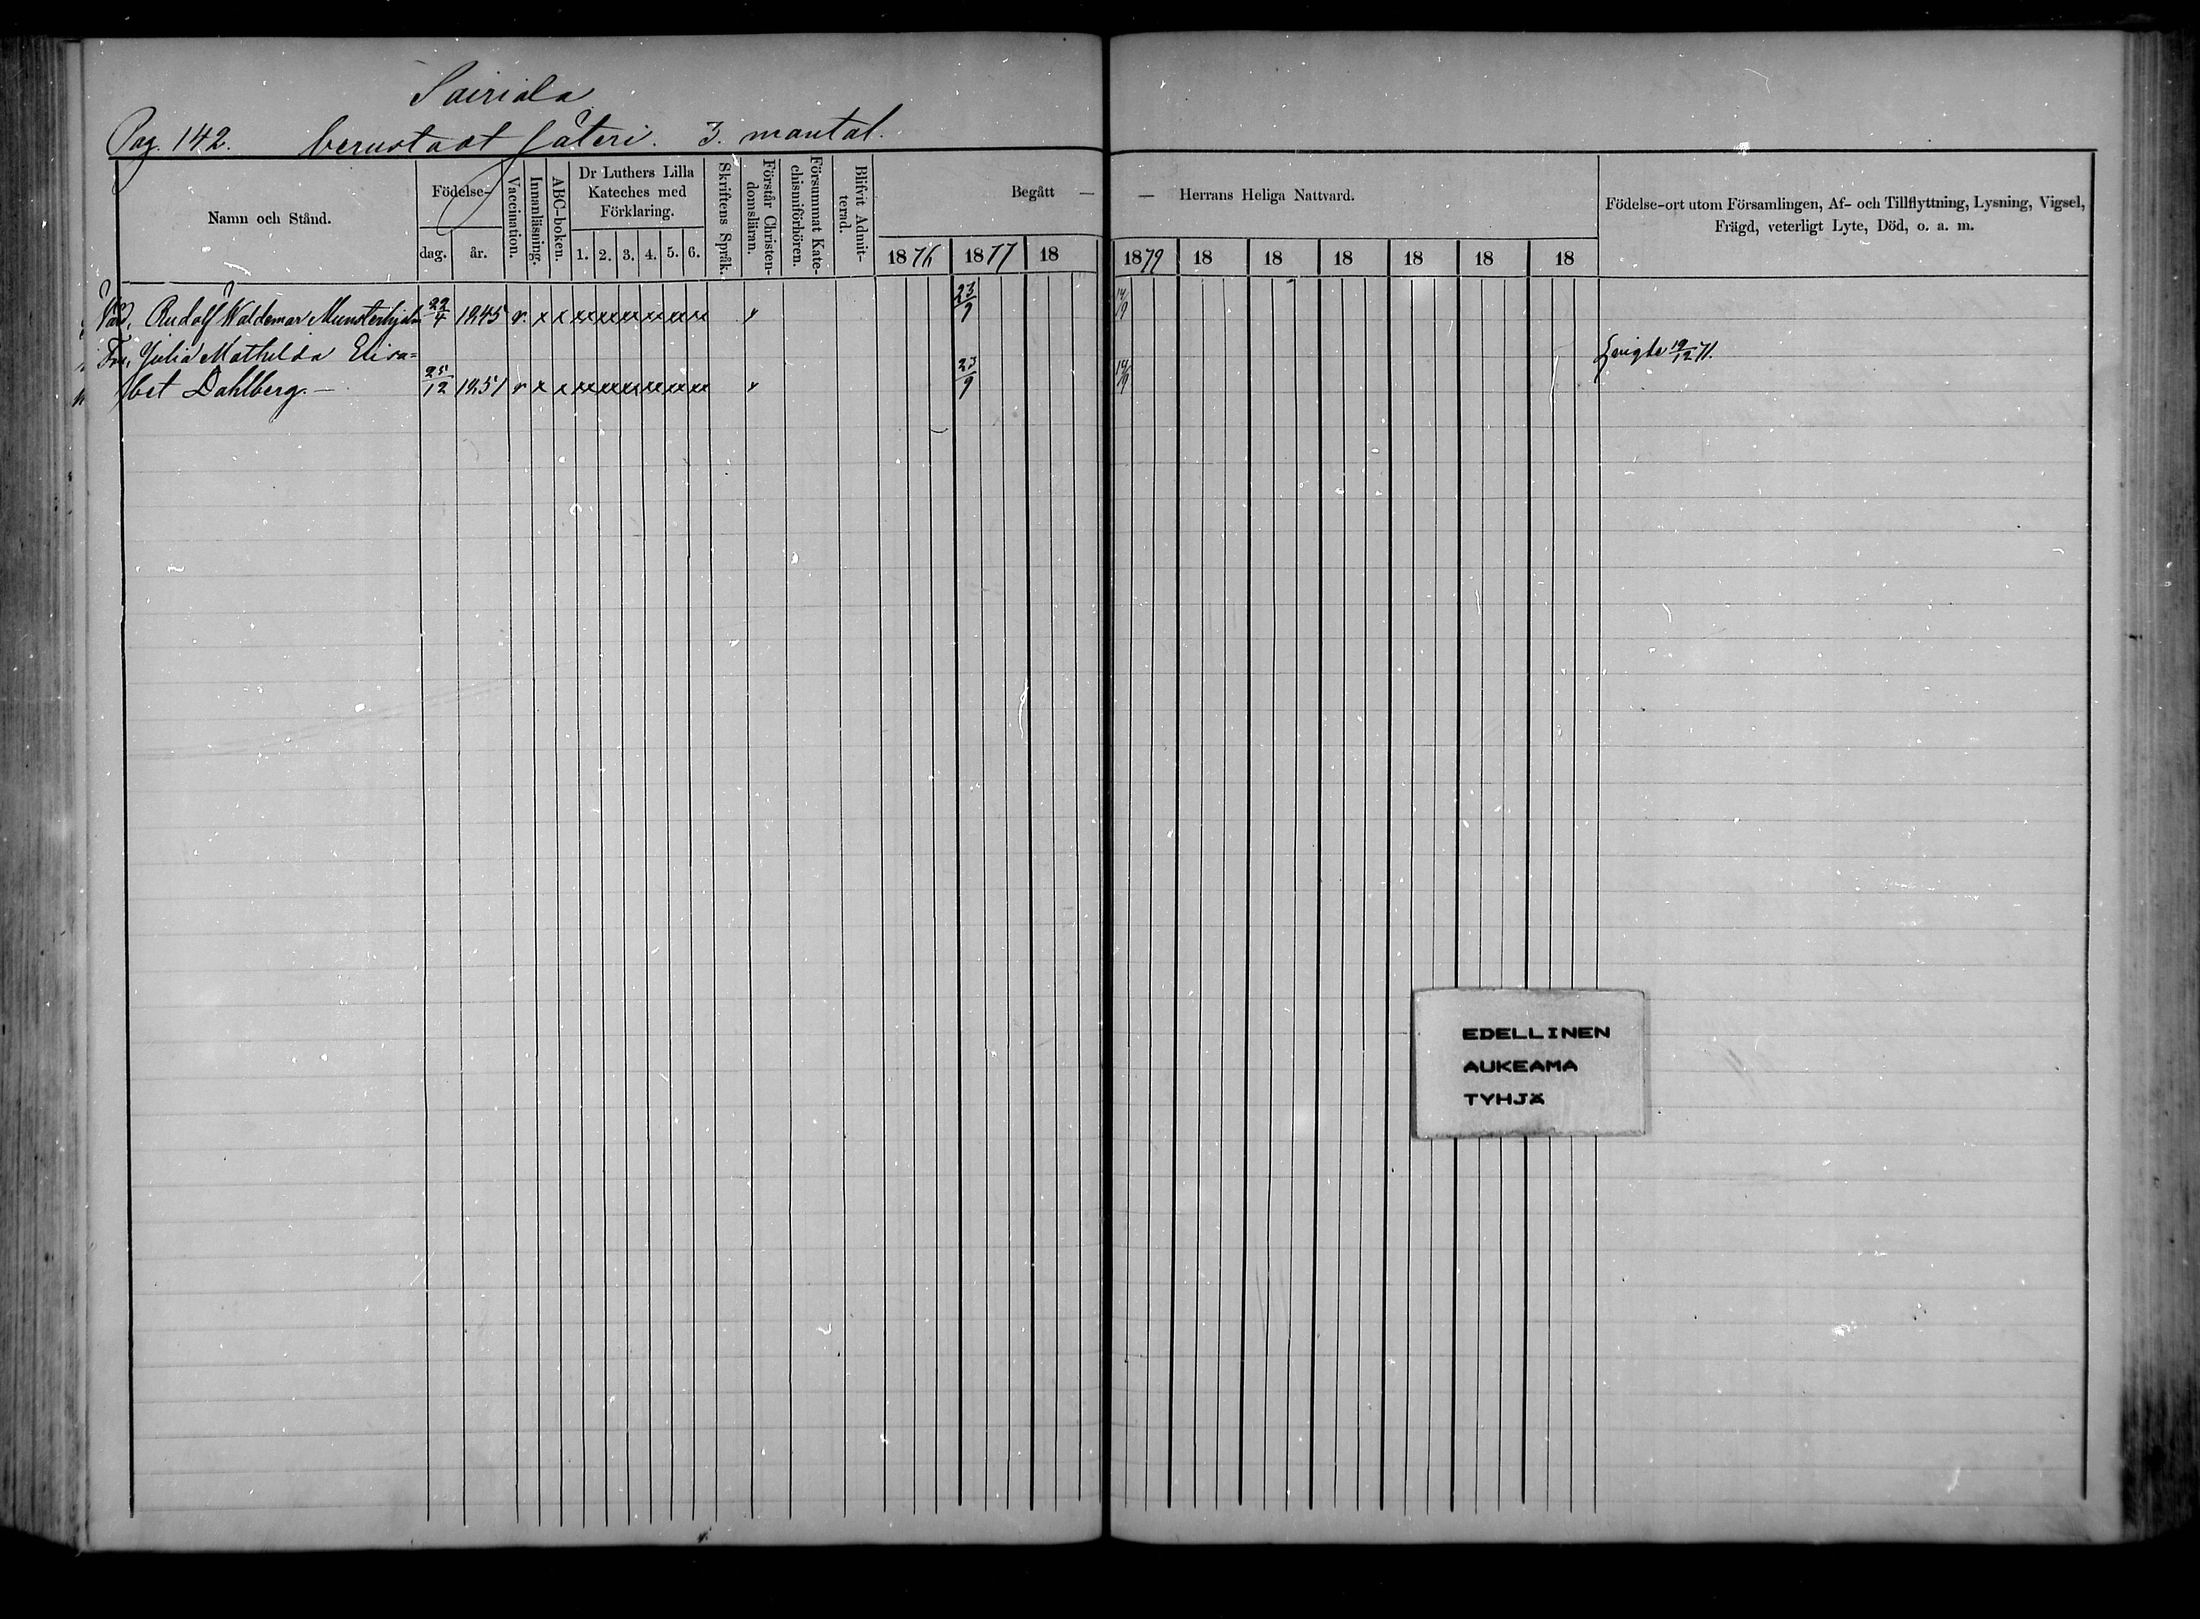 Sairiala
Pag. 142. berustadt säteri. 3. mantal.
Namn och Stånd.
Födelse-
dag. år.
Vaccination.
Innanläsning.
ABC-boken.
Dr Luthers Lilla
Kateches med
Förklaring.
1. 2. 3. 4. 5. 6.
Skriftens Språk.
Förstår Christen-
domsläran.
Försummat Kate-
chismiförhören.
Blifvit Admit-
terad.
Begått — — Herrans Heliga Nattvard.
1876 1877 18 1879 18 18 18 18 18 18
Födelse-ort utom Församlingen, Af- och Tillflyttning, Lysning, Vigsel,
Frägd, veterligt Lyte, Död, o. a. m.
Rudolf Waldemar Munsterhjelm 22/4 1845 v. x x x x x x x x x 23/9 14/9
Fru, Julia Mathilda Elisa=
bet Dahlberg. — 25/12 1851 v x x x x x x x x x 23/9 14/9
vigde 19/12 71.
EDELLINEN
AUKEAMA
TYHJÄ